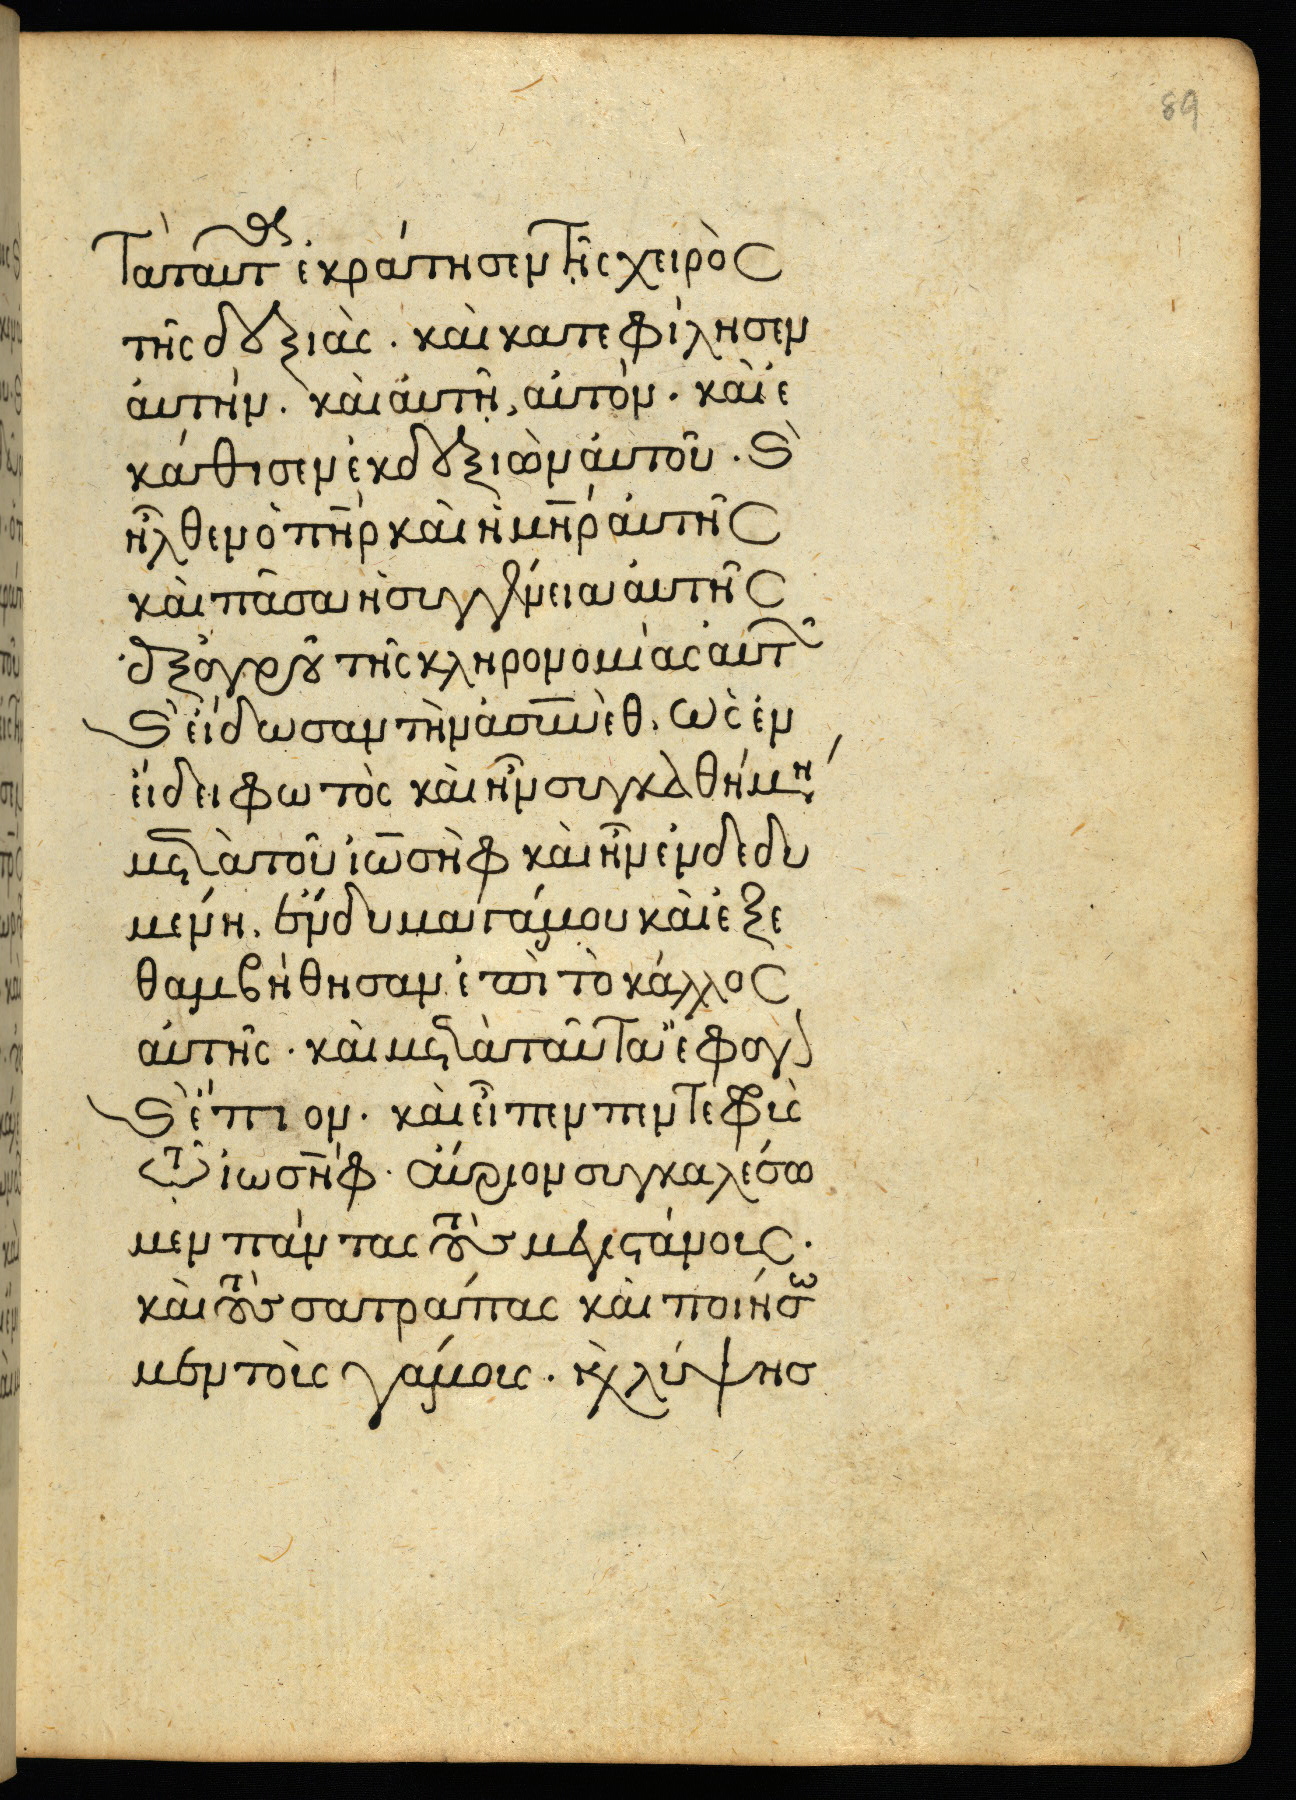 89
Ταπαυτ θς ἐκράτησεν τῆς χειρὸς
τῆς δεξιᾶς . καὶ κατεφίλησεν
ἀυτήν . καὶ ἀυτῆ, αὐτόν . καὶ ἐ
κάθισεν ἐκ δεξιῶν ἀυτοῦ . Ϛ̀
ἦλθεν ὁ πη̅ρ καὶ ἡ μη̅ρ ἀυτῆς
καὶ πᾶσα ἡ συγγένεια ἀυτῆς
ἐξ ἀγροῦ τῆς κληρονομίας ἀυτ
Ϛ̀ εἴδωσαν τὴν ἀσυνὲθ. ὡς ἐν
εἴδει φωτὸς καὶ ἦν συγκαθήμη
μετὰ τοῦ ἰωσὴφ καὶ ἦν ἐνδεδυ
μένη . ἔνδυμα γάμου καὶ ἐξε
θαμβήθησαν ἐπὶ τὸ κάλλος
ἀυτῆς . καὶ μετὰ ταῦτα ἔφαγ
Ϛ̀ ἔπιον . καὶ εἶπεν πεντεφρὶς
τῷ ἰωσήφ . αὔριον συγκαλέσω
μεν πάντας τοὺς μεγιστάνοις .
καὶ τοὺς σατράπας καὶ ποιήσω
μεν τοὶς γάμοις . κ λύψησ